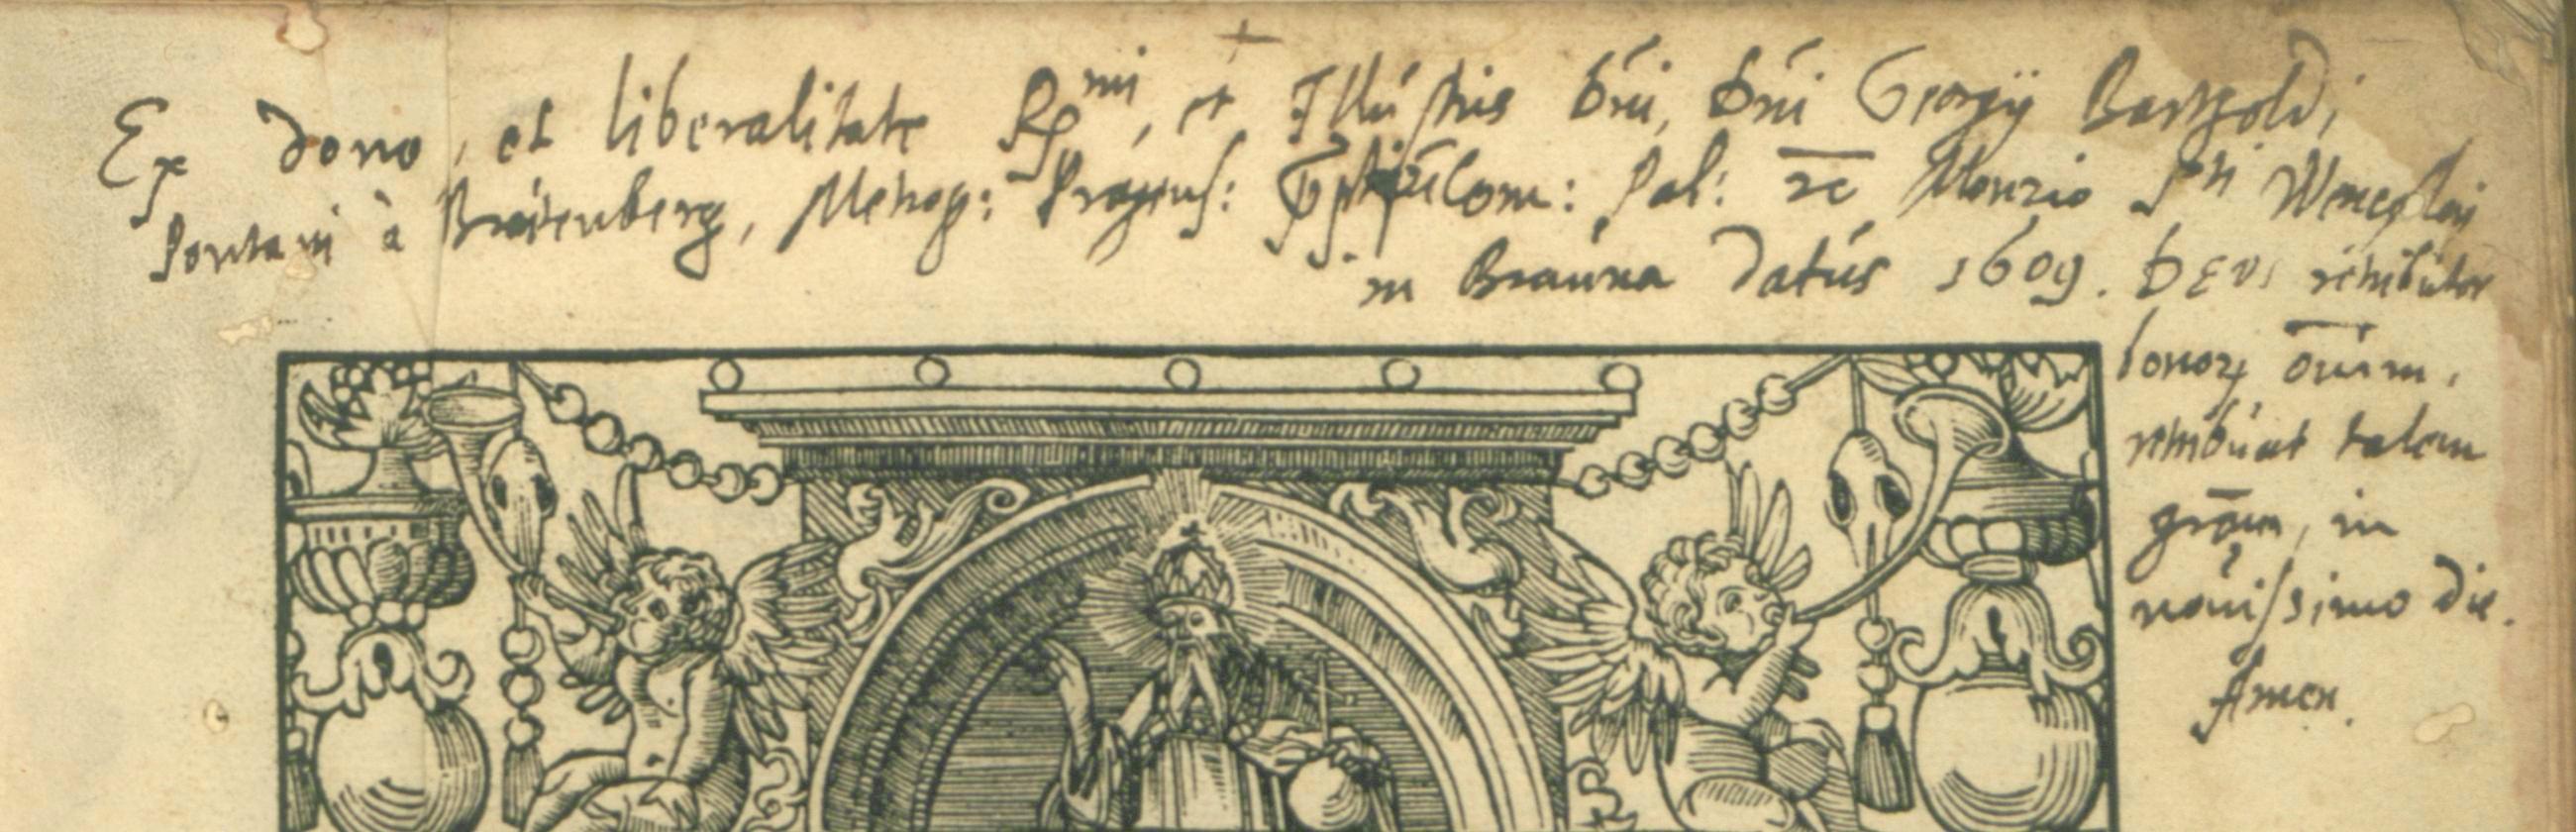 +
Ex dono, et liberalitate Rmi, et Illustris Dni, Dni Georgÿ Bartholdi
Pontani à Braitenberg, Metrop: Pragens: Com: Pal: rc Monrio Sti Wenceslai
in Brauna datus 1609. DEVS retributor
bonorȝ oīum,
retribuat talem
grām, in
nouissimo die.
Amen.